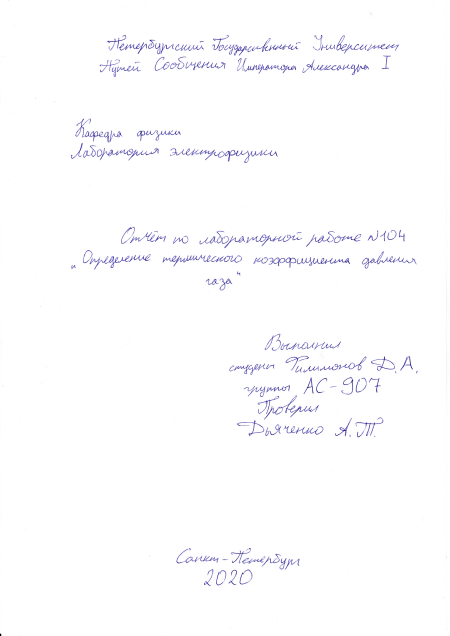 Петербургский Государственный Университет
Путей Сообщения Императора Александра I
Кафедра физики
Лаборатория электрофизики
Отчёт по лабораторной работе №104
„Определение термического коэффициента давления
газа"
Выполнил
студент Филимонов Д.А.
группы АС-907
Проверил
Дьяченко А.Т.
Санкт-Петербург
2020